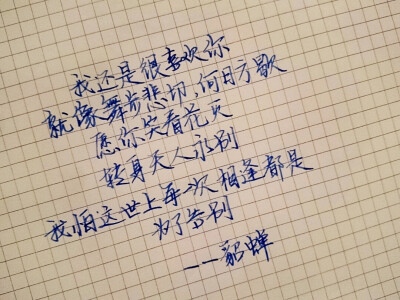 我还是很喜欢你
就像舞步悲切，何日方歇
愿你笑看花灭
转身天人永别
我怕这世上每一次相逢都是
为了告别
——貂蝉